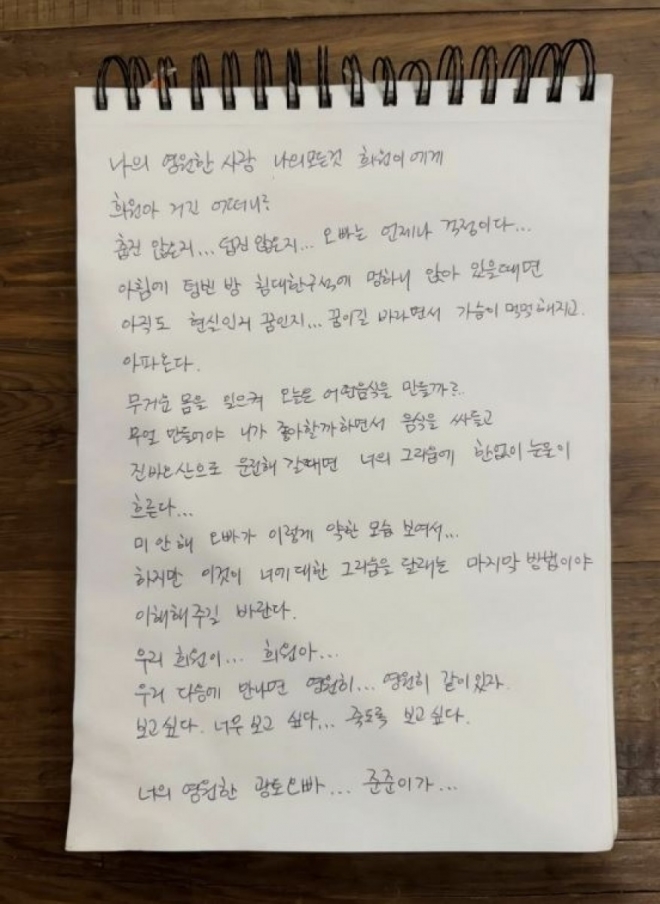 나의 영원한 사랑 나의모든것 희원이에게
희원아 거긴 어떠니?
춥진 않은지... 덥진 않은지... 오빠는 언제나 걱정이다...
아침에 텅빈 방 침대한구석에 멍하니 앉아 있을때면
아직도 현실인지 꿈인지... 꿈이길 바라면서 가슴이 먹먹해지고.
아파온다.
무거운 몸을 일으켜 오늘은 어떤음식을 만들까?..
무얼 만들어야 니가 좋아할까하면서 음식을 싸들고
진바으산으로 운전해 갈때면 너의 그리움에 한없이 눈물이
흐른다...
미안해 오빠가 이렇게 약한 모습 보여서...
하지만 이것이 너에대한 그리움을 달래는 마지막 방법이야
이해해주길 바란다.
우리 희원이... 희원아...
우리 다음에 만나면 영원히... 영원히 같이있자.
보고싶다. 너무 보고 싶다... 죽도록 보고싶다.
너의 영원한 광토오빠... 준준이가...